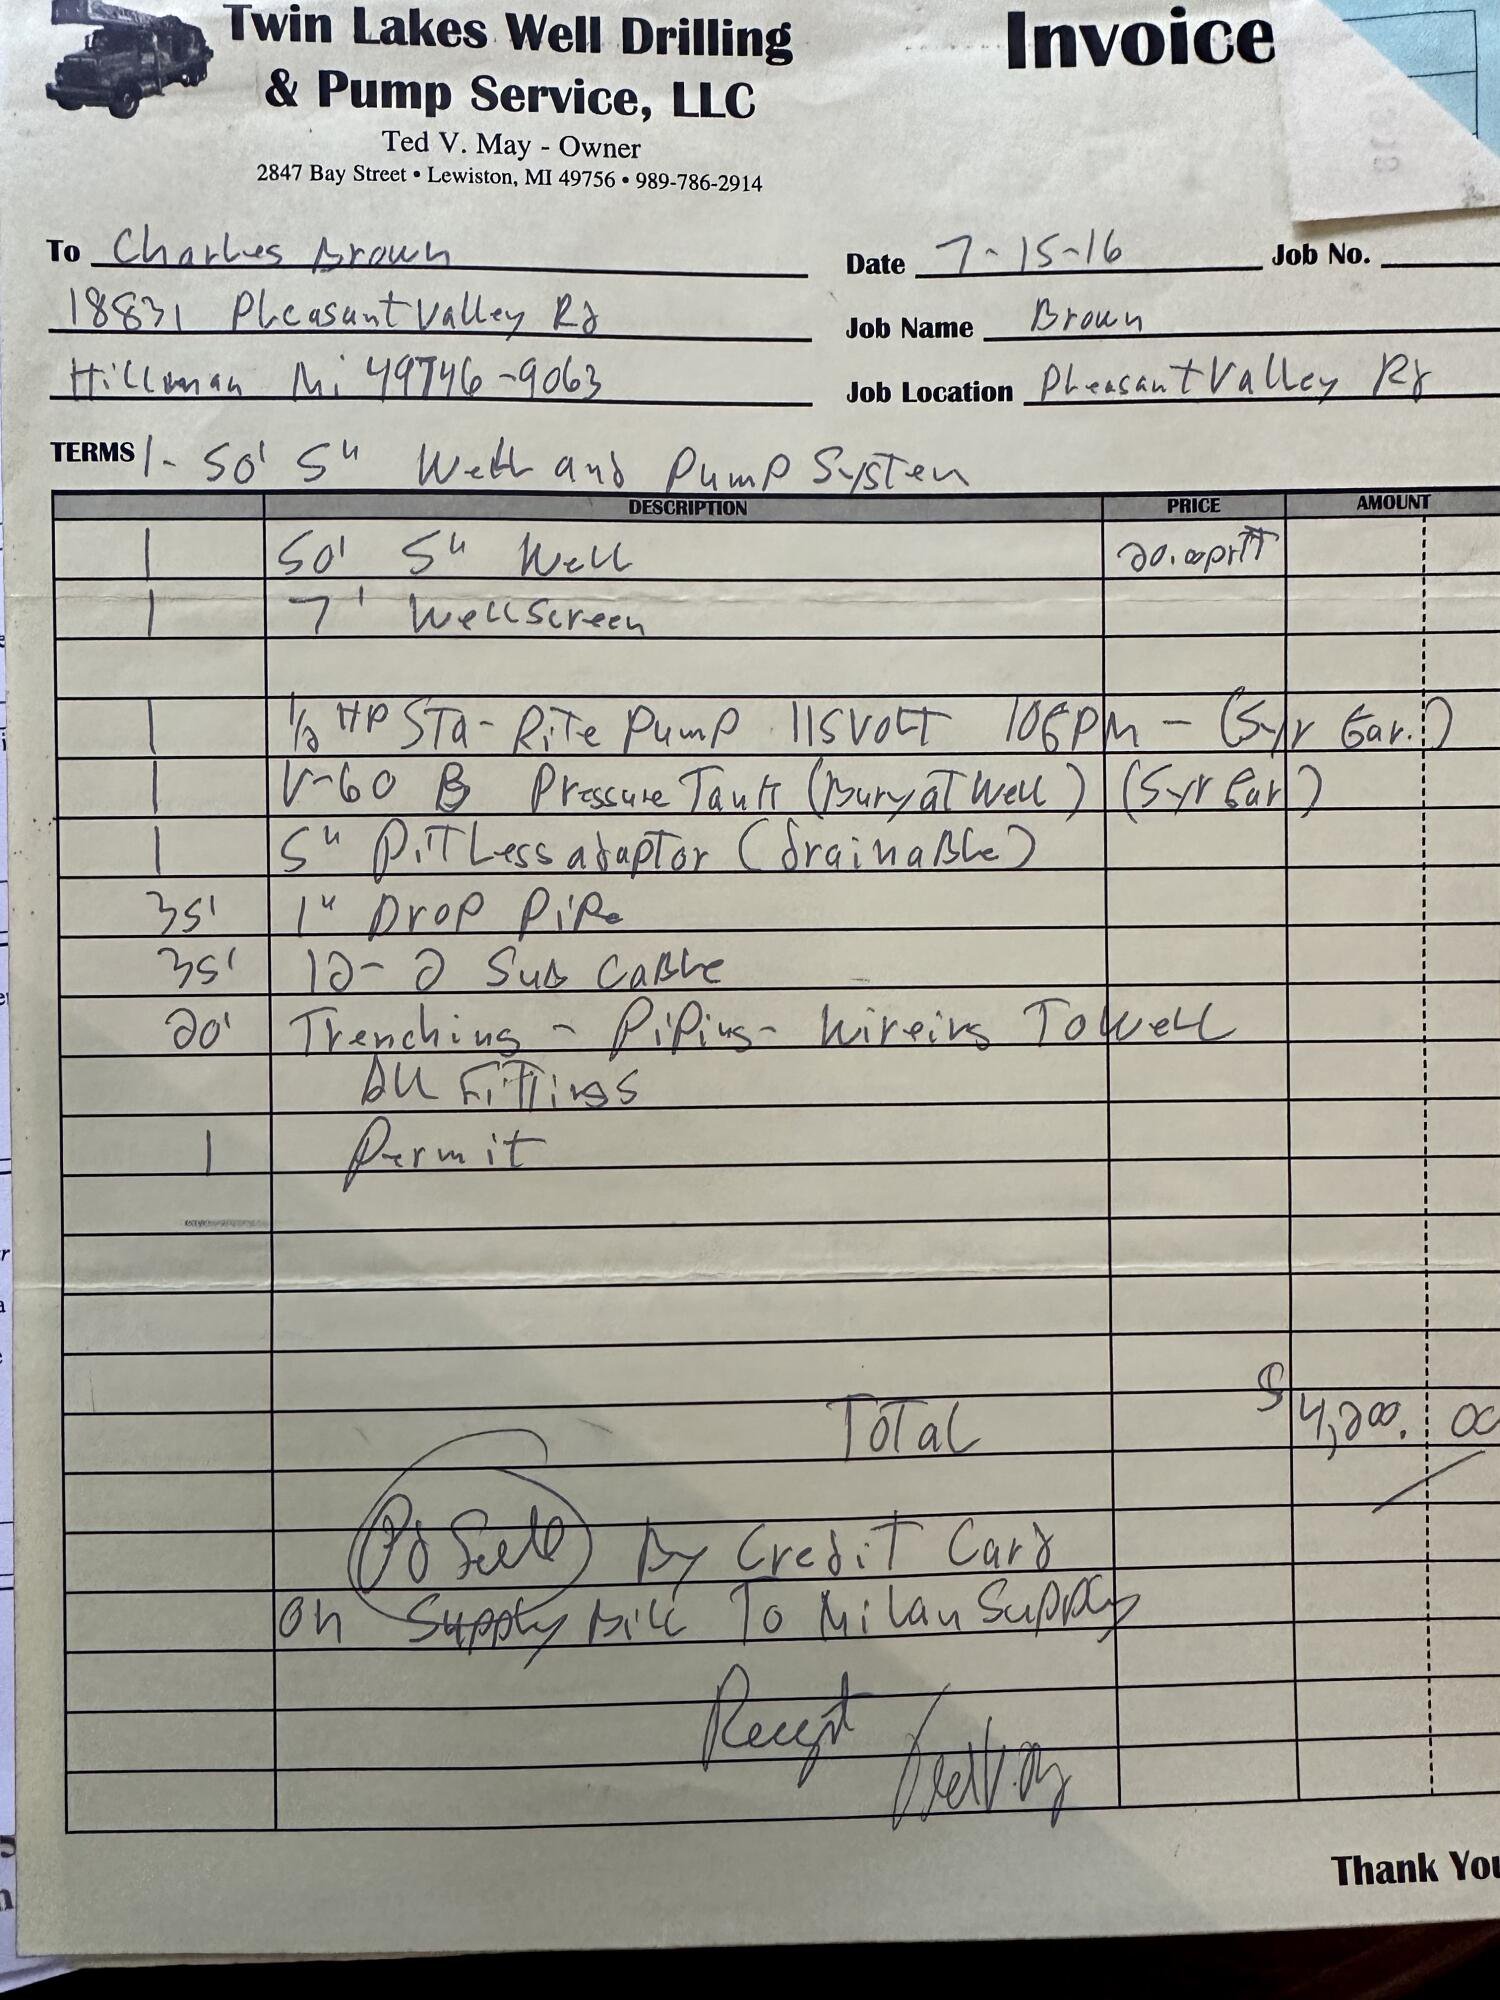 Twin Lakes Well Drilling
& Pump Service, LLC
Invoice
Ted V. May - Owner
2847 Bay Street • Lewiston, MI 49756 • 989-786-2914
To Charles Brown
Date 7-15-16 Job No.
18831 Pleasant Valley Rd
Job Name Brown
Hillman Mi 49746-9063
Job Location Pleasant Valley Rd
TERMS 1- 50' 5" Well and Pump System
DESCRIPTION PRICE AMOUNT
1 50' 5" Well 20.00 pr ft
1 7' Well Screen
1 1/2 HP Sta-Rite Pump 115 Volt 10GPM - (5yr Gar.)
1 V-60 B Pressure Tank (Bury at Well) (5yr Gar)
1 5" Pitless adaptor (drainable)
35' 1" Drop Pipe
35' 12-2 Sub Cable
20' Trenching - Piping - Wireing To Well
All Fittings
1 Permit
Total $4,200.00
Pd Full By Credit Card
on Supply Bill To Milan Supply
Receipt Ted V. May
Thank You